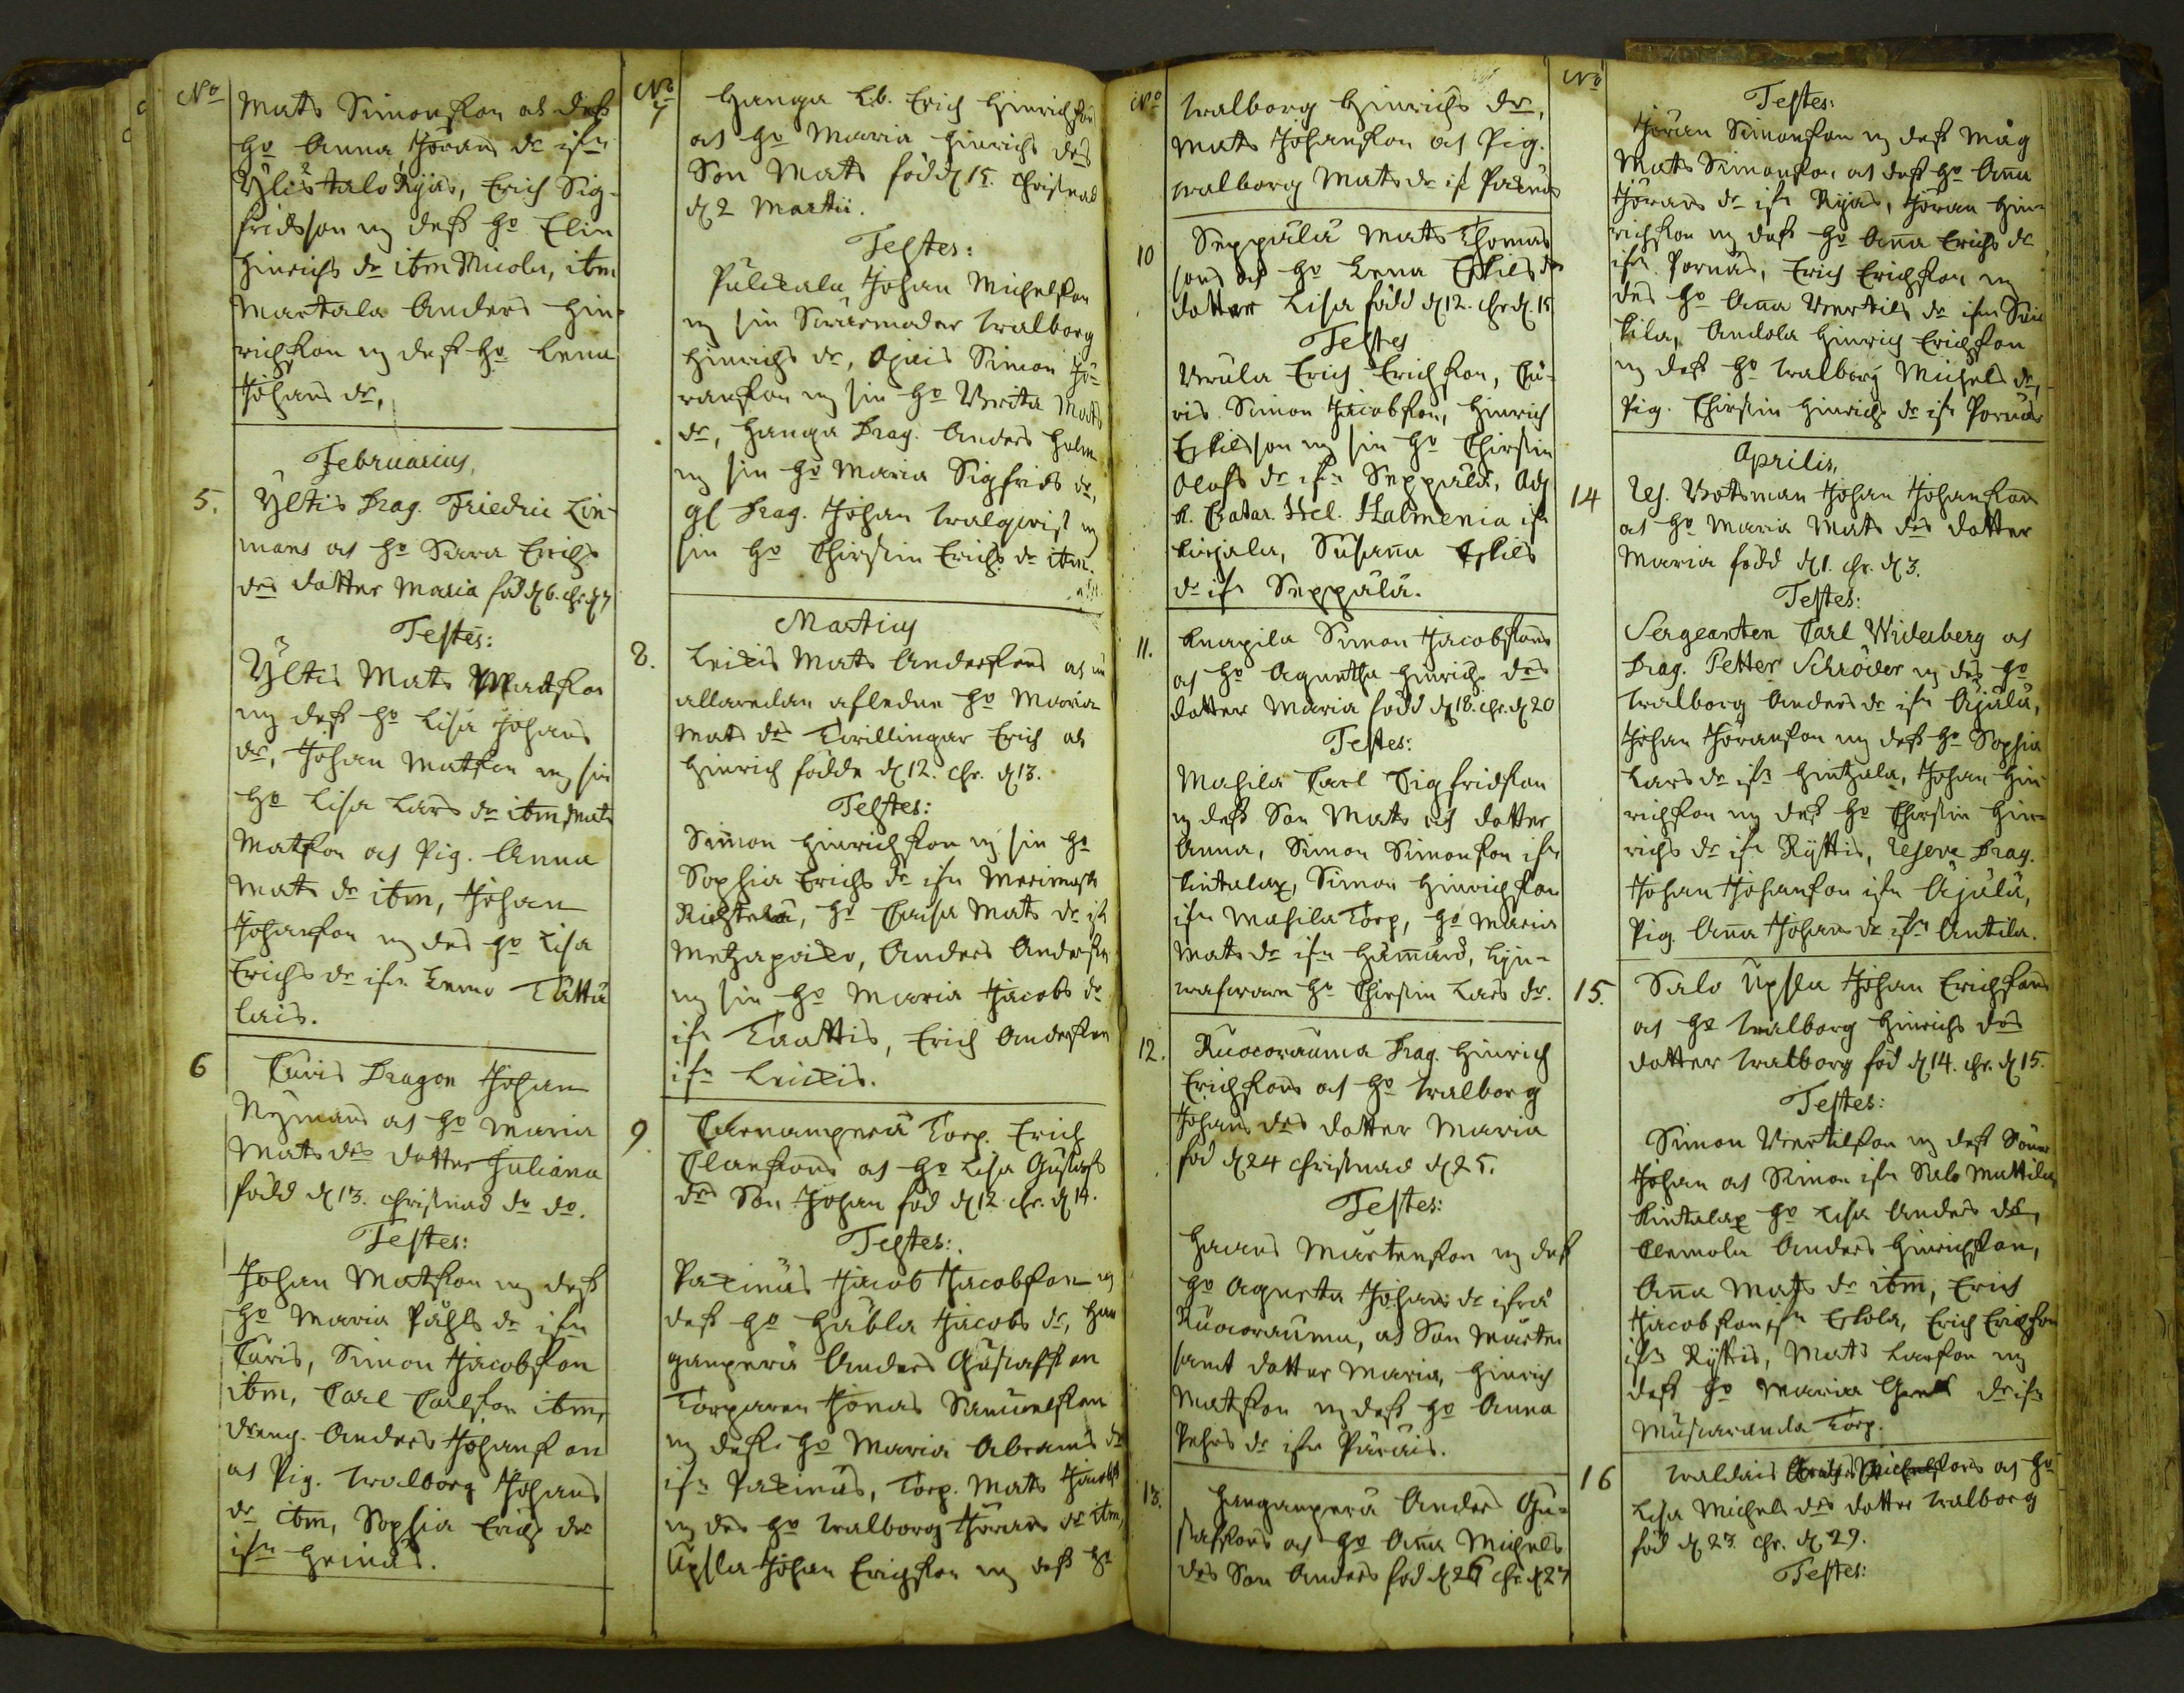 No
Mats Simonsson och dess
Ho Anna Jörans dr ifrn
Ylistalo Rijas, Erich Sig-
fridsson m dess Ho Elin
Hinrichs dr ibm Micola, ibm
Martala Anders Hin-
richsson m dess Ho Lena
Johans dr,
Februarius,
5. Yltis Drag. Friedric Lin-
mans och Ho Sara Erichs
drs dotter Maria föd d 6. chr. d 7
Testes:
Yltis Mats Matsson
m dess Ho Lisa Johans
dr, Johan Matsson m sin
Ho Lisa Lars dr ibm, Mats
Matsson och Pig. Anna
Mats dr ibm, Johan
Johansson m des Ho Lisa
Erichs dr ifrn Lemo Tåttu
lais.
6 Turis Dragon Johan
Nymans och Ho Maria
Mats drs dotter Juliana
född d 13. christnad do do.
Testes:
Johan Matsson m dess
Ho Maria Påhls dr ifrn
Turis, Simon Jacobsson
ibm, Carl Carlsson ibm,
dreng. Anders Johansson
och Pig. Walborg Johans
dr ibm, Sophia Erichs dr
ifrn Heinäs.
No
7 Hanga Lb. Erich Hinrichssons
och Ho Maria Hinrichs drs
Son Mats född d 15. christnad
d 2 Martii.
Testes:
Pulckala Johan Michelsson
m sin Swärmoder Walborg
Hinrichs dr, Ojais Simon Jö-
ransson m sin Ho Brita Mats
dr, Hanga Drag. Anders Holm
m sin Ho Maria Sigfrids dr,
gl Drag. Johan Walqwist m
sin Ho Chirstin Erichs dr ibm.
Martius
8. Leickis Mats Anderssons och nu
allaredan afledne Ho Maria
Mats drs Twillingar Erich och
Hinrich födde d 12. chr. d 13.
Testes:
Simon Hinrichsson m sin Ho
Sophia Erichs dr ifrn Merimask
Richtelä, Ho Caisa Mats dr ifrn
Metzapaico, Anders Andersson
m sin Ho Maria Jacobs dr
ifrn Taattis, Erich Andersson
ifrn Leickis.
9. Carvanperä Torp. Erich
Clanssons och Ho Lisa Gustafs
drs Son Johan föd d 12 chr. d 14.
Testes:
Packinas Jacob Jacobsson m
dess Ho Håbla Jacobs dr, Han
ganperä Anders Gustafsson
Torparen Jonas Samuelsson
m dess Ho Maria Abrams dr
ifrn Packinas, Torp. Mats Jacobs
m des Ho Walborg Jörans dr ibm,
Upsla Johan Erichsson m dess Ho
No
Walborg Hinrichs dr,
Mats Johansson och Pig.
Walborg Mats dr ifrn Packinas
10 Seppälä Mats Thomas
sons och Ho Lena Eskils drs
dotter Lisa född d 12. chr d. 15.
Testes
Urula Erich Erichsson, Tu-
ris Simon Jacobsson, Hinrich
Eskilsson m sin Ho Chirstin
Olofs dr ifrn Seppälä, Adj
k. Catar. Hel. Halmenia ifrn
Kirjala, Susanna Eskils
dr ifrn Seppälä.
11. Knapila Simon Jacobssons
och Ho Agnetha Hinrichs drs
dotter Maria född d 18. chr. d 20
Testes:
Mahila Carl Sigfridsson
m dess Son Mats och dotter
Anna, Simon Simonsson ifrn
Lintalax, Simon Hinrichsson
ifrn Mahila Torp, Ho Maria
Mats dr ifrn Hämäis, Lyn-
wahrare Ho Chirstin Lars dr.
12. Ruocorauma Drag. Hinrich
Erichssons och Ho Walborg
Johans drs dotter Maria
föd d 24 christnad d 25.
Testes:
Hans Mårtensson m dess
Ho Agneta Johans dr ifrå
Ruocorauma, och Son Mårten
samt dotter Maria, Hinrich
Matsson m dess Ho Anna
Pehrs dr ifrn Puräis.
13. Hanganperä Anders Gu-
stafssons och Ho Anna Michels
drs Son Anders föd d 26 chr. d 27
No
Testes:
Jöran Simonsson m dess Måg
Mats Simonsson och dess Ho Anna
Jörans dr ifrn Rijas, Jöran Hin-
richsson m dess Ho Anna Erichs dr
ifrn Pornäs, Erich Erichsson m
des Ho Anna Bertils dr ifrn Sui
kila, Andola Hinrich Erichsson
m dess Ho Walborg Michels dr,
Pig. Chirstin Hinrichs dr ifrn Pornäs
Aprilis,
14 Res. Botsman Johan Johanssons
och Ho Maria Mats drs dotter
Maria född d 1. chr. d 3.
Testes:
Sergeanten Carl Widerberg och
Drag. Petter Schröder m des Ho
Walborg Anders dr ifrn Äijälä,
Johan Jöransson m dess Ho Sophia
Lars dr ifrn Hintzala, Johan Hin
richsson m dess Ho Chirstin Hin-
richs dr ifrn Ryttis, Reserv Drag.
Johan Johansson ifrn Äijälä,
Pig. Anna Johans dr ifrn Antila.
15. Salo Upsla Johan Erichssons
och Ho Walborg Hinrichs drs
dotter Walborg föd d 14. chr. d 15.
Testes:
Simon Bertilsson m dess Söner
Johan och Simon ifrn Salo Mattila,
Lintalax Ho Lisa Anders dr,
Clemola Anders Hinrichsson,
Anna Mats dr ibm, Erich
Jacobsson ifrn Eskola, Erich Erichsson
ifrn Ryttis, Mats Larsson m
dess Ho Maria dr ifrn
Musaranda Torp.
16 Waldais Michelssons och Ho
Lisa Michels drs dotter Walborg
föd d 23. chr. d 29.
Testes: